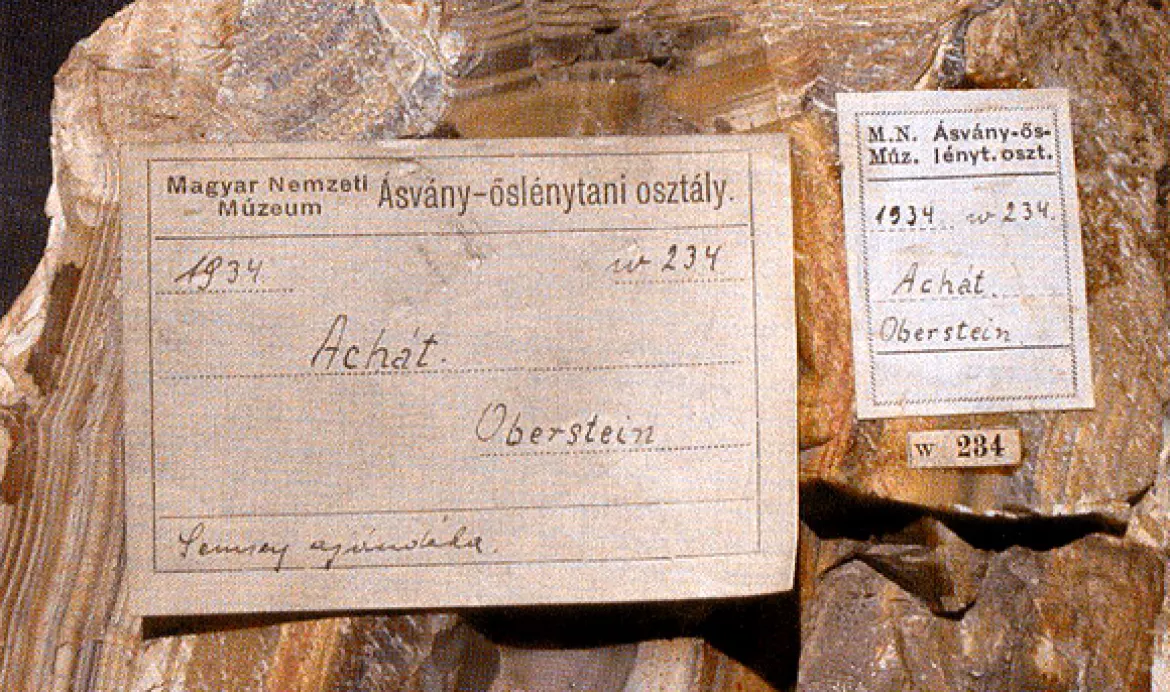 Magyar Nemzeti Múzeum
Ásvány-őslénytani osztály.
1934 w 234
Achát.
Oberstein
Semsey ajándéka.
M.N. Múz.
Ásvány-ős-
lényt. oszt.
1934. w 234.
Achát.
Oberstein
w 234